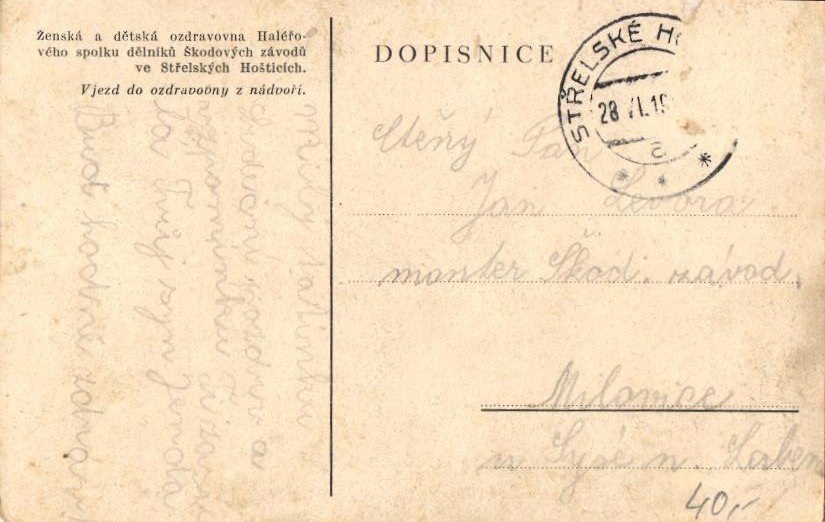 Ženská a dětská ozdravovna Haléřo-
vého spolku dělníků Škodových závodů
ve Střelských Hošticích.
Vjezd do ozdravovny z nádvoří.
DOPISNICE
STŘELSKÉ HO
28 VI. 19
a
Ctěný Pan
Jan
montér Škod. závod.
Milovice
n Lysé n. Labem
40,-
milý tatínku
Srdečný pozdrav a
vzpomínku Ti zasí
lá Tvůj syn Jenda
Buď hodně zdráv!